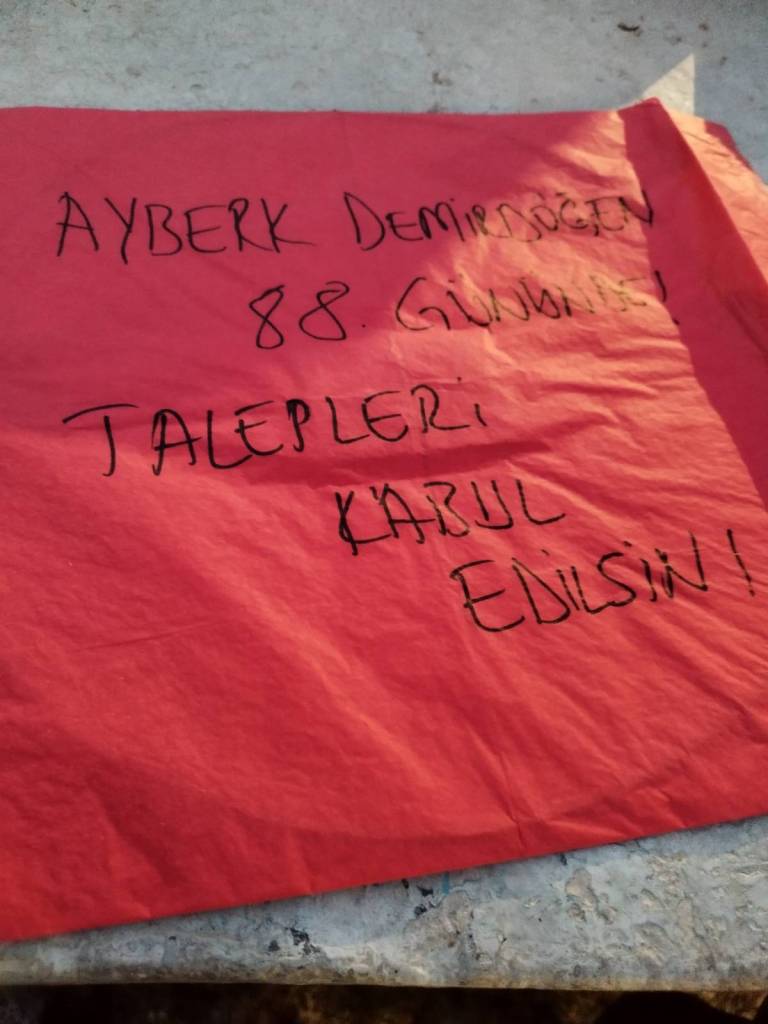 AYBERK DEMİRDÖĞEN
88. GÜNÜNDE!
TALEPLERİ
KABUL
EDİLSİN!